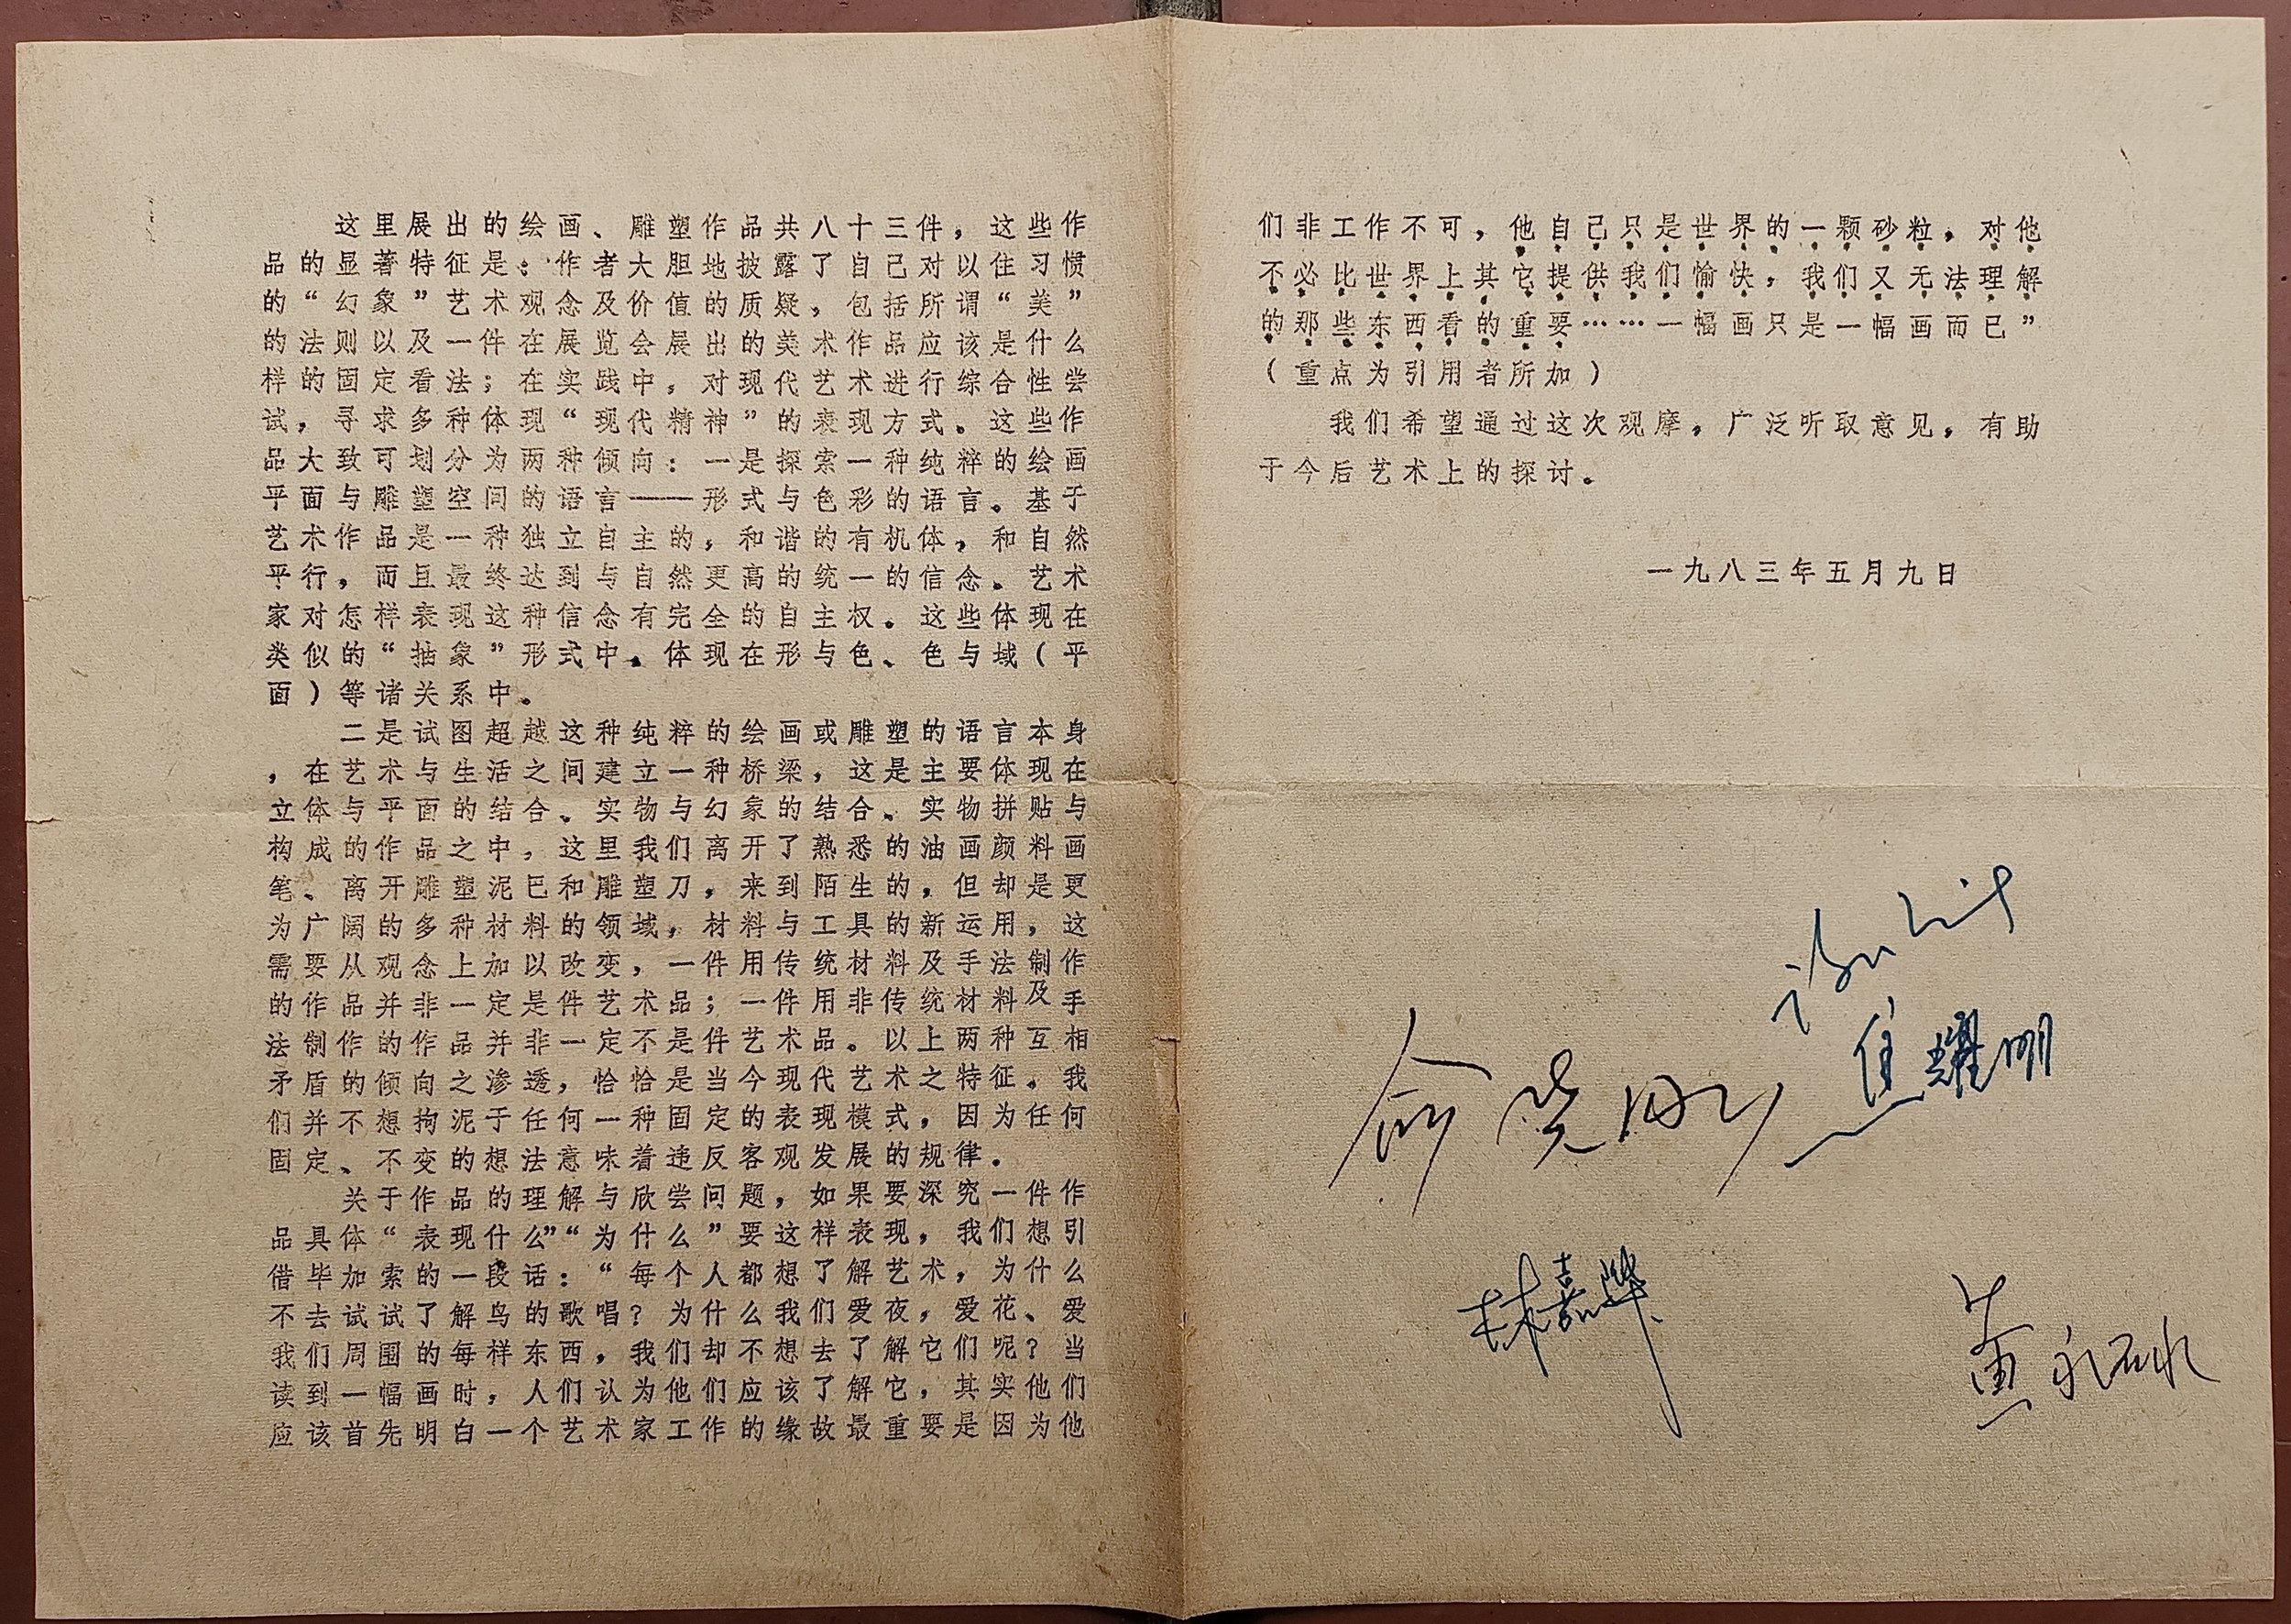 这里展出的绘画、雕塑作品共八十三件，这些作
品的显著特征是：作者大胆地披露了自己对以住习惯
的“幻象”艺术观念及价值的质疑，包括所谓“美”
的法则以及一件在展览会展出的美术作品应该是什么
样的固定看法；在实践中，对现代艺术进行综合性尝
试，寻求多种体现“现代精神”的表现方式。这些作
品大致可划分为两种倾向：一是探索一种纯粹的绘画
平面与雕塑空间的语言——形式与色彩的语言。基于
艺术作品是一种独立自主的，和谐的有机体，和自然
平行，而且最终达到与自然更高的统一的信念。艺术
家对怎样表现这种信念有完全的自主权。这些体现在
类似的“抽象”形式中、体现在形与色、色与域（平
面）等诸关系中。
二是试图超越这种纯粹的绘画或雕塑的语言本身
，在艺术与生活之间建立一种桥梁，这是主要体现在
立体与平面的结合、实物与幻象的结合、实物拼贴与
构成的作品之中，这里我们离开了熟悉的油画颜料画
笔、离开雕塑泥巴和雕塑刀，来到陌生的，但却是更
为广阔的多种材料的领域，材料与工具的新运用，这
需要从观念上加以改变，一件用传统材料及手法制作
的作品并非一定是件艺术品；一件用非传统材料及手
法制作的作品并非一定不是件艺术品。以上两种互相
矛盾的倾向之渗透，恰恰是当今现代艺术之特征。我
们并不想拘泥于任何一种固定的表现模式，因为任何
固定、不变的想法意味着违反客观发展的规律。
关于作品的理解与欣尝问题，如果要深究一件作
品具体“表现什么”“为什么”要这样表现，我们想引
借毕加索的一段话：“每个人都想了解艺术，为什么
不去试试了解鸟的歌唱？为什么我们爱夜，爱花、爱
我们周围的每样东西，我们却不想去了解它们呢？当
读到一幅画时，人们认为他们应该了解它，其实他们
应该首先明白一个艺术家工作的缘故最重要是因为他
们非工作不可，他自己只是世界的一颗砂粒，对他
不必比世界上其它提供我们愉快，我们又无法理解
的那些东西看的重要……一幅画只是一幅画而已”
（重点为引用者所加）
我们希望通过这次观摩，广泛听取意见，有助
于今后艺术上的探讨。
一九八三年五月九日
焦耀明
俞晓刚
林嘉骅
黄永砯